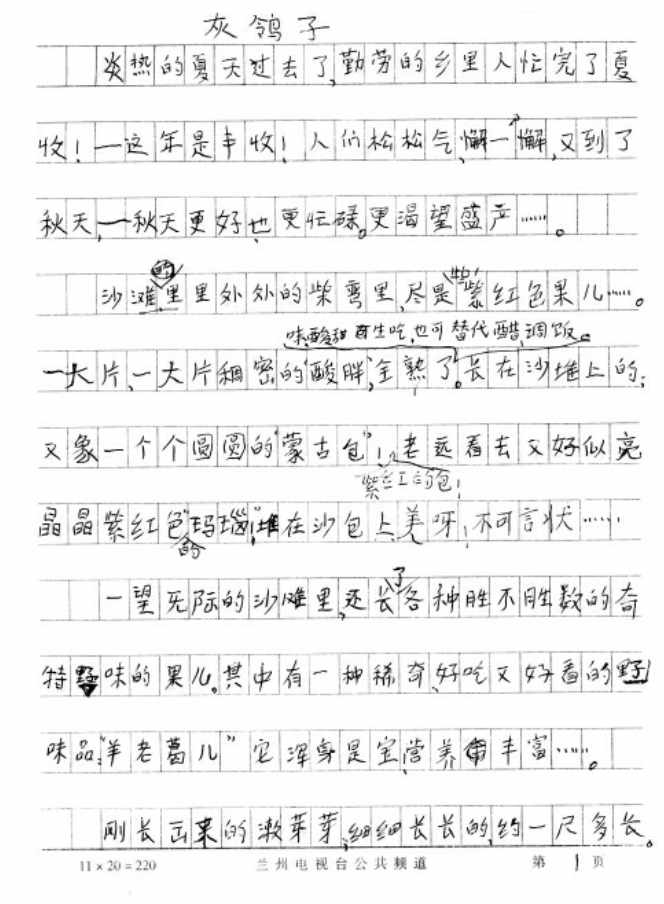 灰鸽子
炎热的夏天过去了,勤劳的乡里人忙完了夏
收!一这年是丰收!人们松松气,懈一懈,又到了
秋天,一秋天更好也更忙碌。更渴望盛产……。
的
沙滩里里外外的柴弯里,尽是紫紫红色果儿……。
味酸甜 可生吃,也可替代醋调饭。
一大片,一大片稠密的"酸胖",全熟了。长在沙堆上的;
又象一个个圆圆的"蒙古包"!老远看去又好似亮
紫红的包!
晶晶紫红色"玛瑙",堆在沙包上,美呀!不可言状……
的
了
一望无际的沙滩里,还长各种胜不胜数的奇
特野味的果儿。其中有一种稀奇、好吃又好看的野
味品:"羊老葛儿"它浑身是宝,营养丰富……。
刚长出来的嫩芽芽,细细长长的,约一尺多长。
11×20=220 兰州电视台公共频道 第 1 页